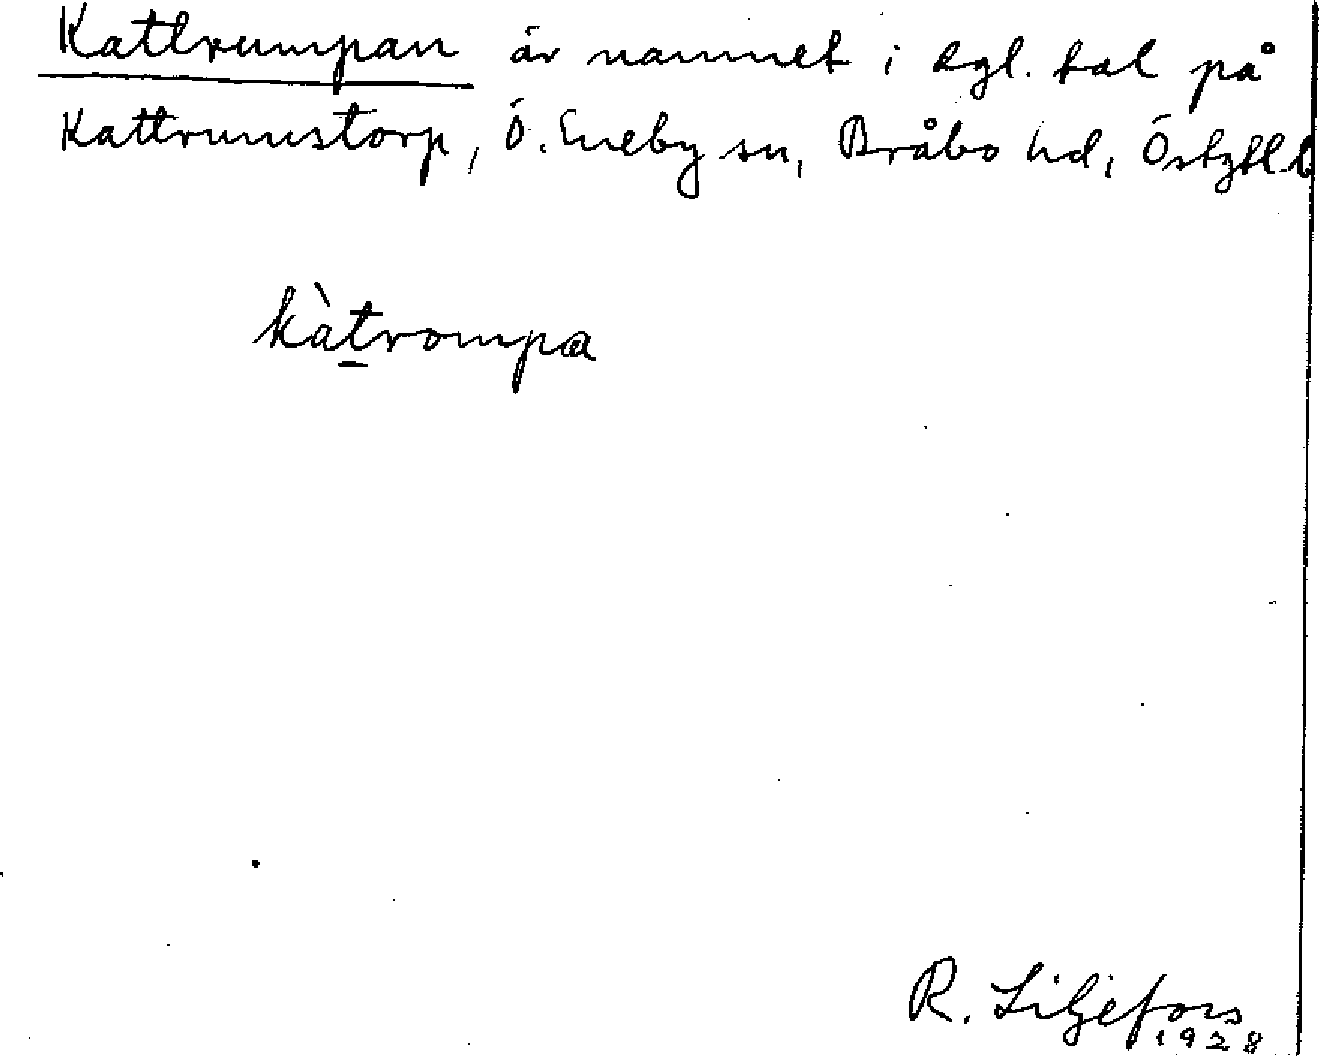 Kattrumpan är namnet i dgl. tal på
Kattrumstorp, Ö. Eneby sn, Bråbo hd, Östgtl.
kàtrompa
R. Liljefors
1928